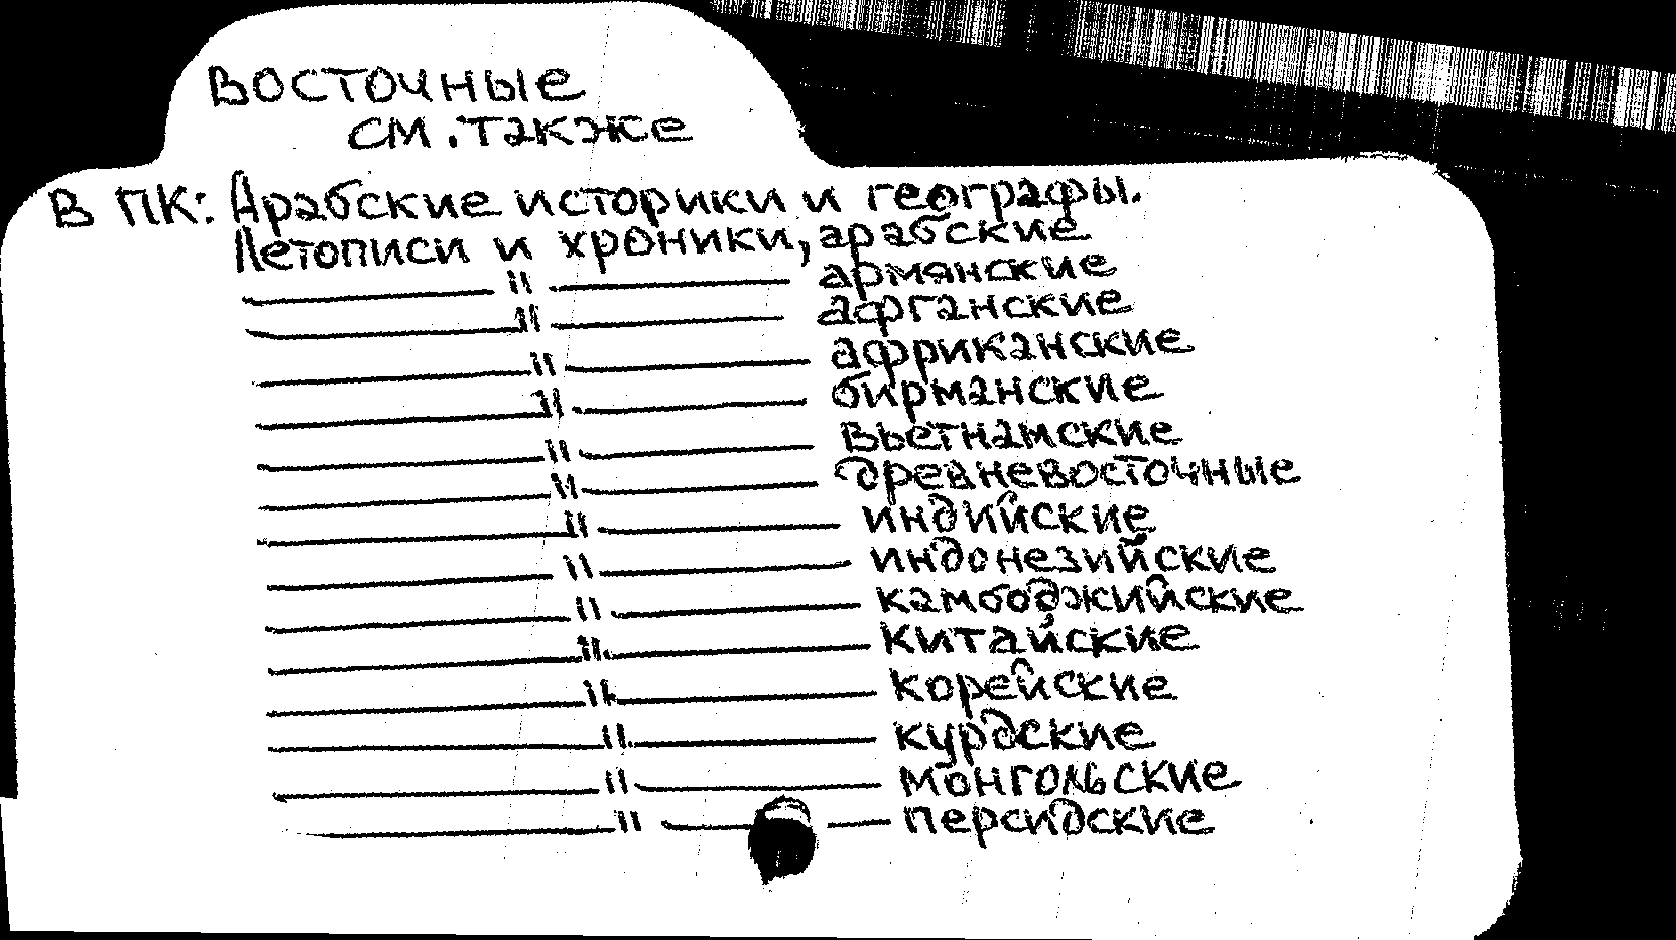 Восточные
см. также
В ПК: Арабские историки и географы.
Летописи и хроники, арабские
— " — армянские
— " — афганские
— " — африканские
— " — бирманские
— " — вьетнамские
— " — древневосточные
— " — индийские
— " — индонезийские
— " — камбоджийские
— " — китайские
— " — корейские
— " — курдские
— " — монгольские
— " — персидские